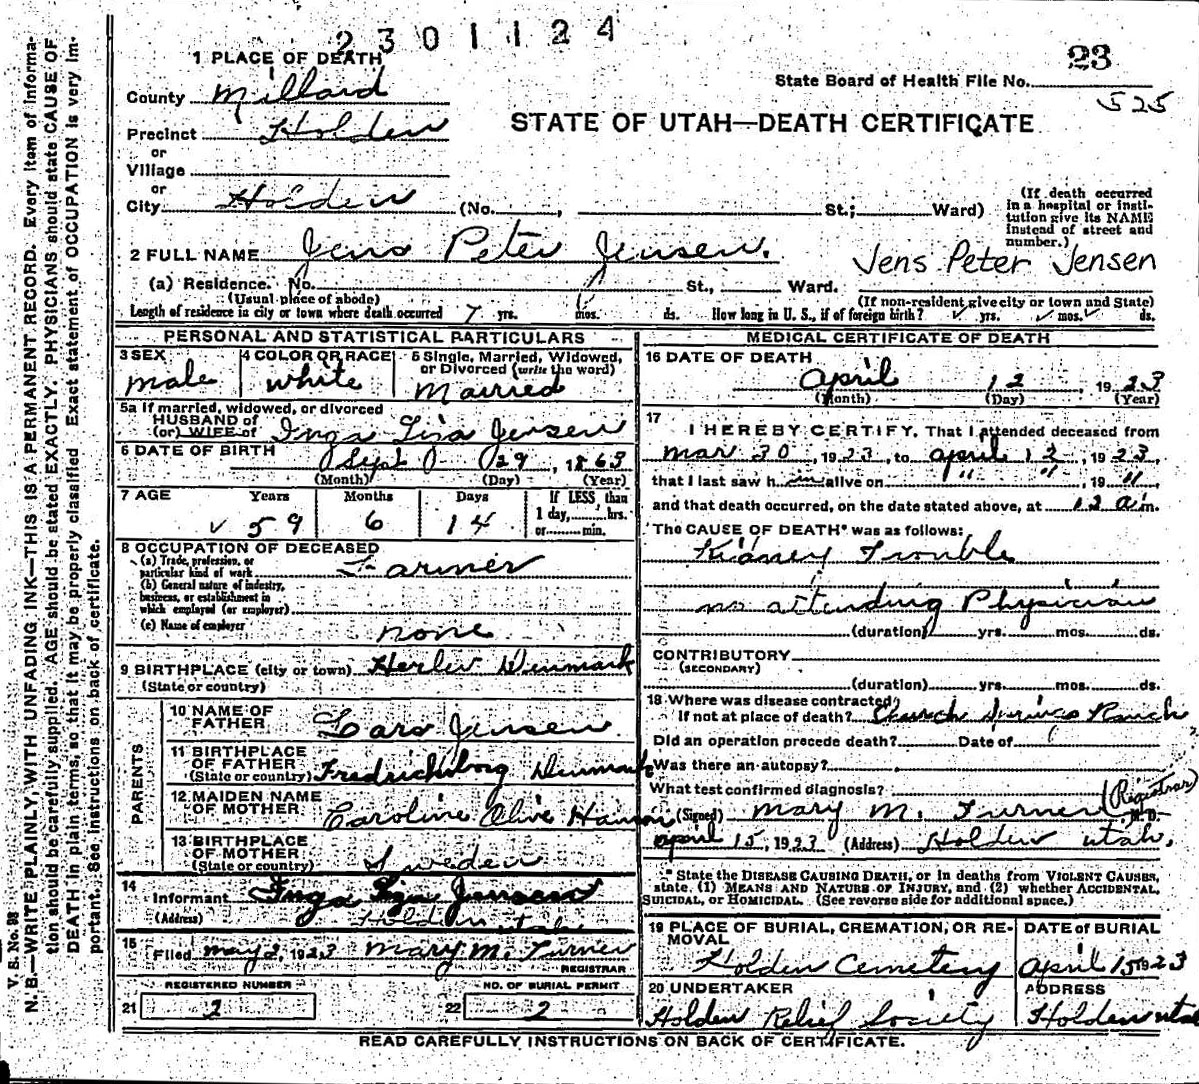 2301124
1 PLACE OF DEATH
23
State Board of Health File No.
525
County Millard
Precinct Holden
STATE OF UTAH—DEATH CERTIFICATE
or
Village
or
City Holden (No. , St.; Ward)
(If death occurred in a hospital or insti-
tution give its NAME
instead of street and
number.)
2 FULL NAME Jens Peter Jensen.
Jens Peter Jensen
(a) Residence. No. St., Ward.
(Usual place of abode)
(If non-resident give city or town and State)
Length of residence in city or town where death occurred 7 yrs. mos. ds. How long in U. S., if of foreign birth? ✓ yrs. ✓ mos. ✓ ds.
PERSONAL AND STATISTICAL PARTICULARS
3 SEX
male
4 COLOR OR RACE
white
5 Single, Married, Widowed,
or Divorced (write the word)
Married
5a If married, widowed, or divorced
HUSBAND of
(or) WIFE of Inga Liza Jensen
6 DATE OF BIRTH
Sept 29, 1863
(Month) (Day) (Year)
7 AGE Years Months Days
✓ 59 6 14
If LESS than
1 day, hrs.
or min.
8 OCCUPATION OF DECEASED
(a) Trade, profession, or
particular kind of work Farmer
(b) General nature of industry,
business, or establishment in
which employed (or employer)
(c) Name of employer none
9 BIRTHPLACE (city or town) Denmark
(State or country)
PARENTS
10 NAME OF
FATHER Lars Jensen
11 BIRTHPLACE
OF FATHER
(State or country) Fredrichsborg Denmark
12 MAIDEN NAME
OF MOTHER Caroline Olive Hanson
13 BIRTHPLACE
OF MOTHER
(State or country) Sweden
14
Informant Inga Liza Jensen
(Address) Holden utah
15
Filed may 2, 1923 Mary M. Turner
REGISTRAR
REGISTERED NUMBER
21 2
NO. OF BURIAL PERMIT
22 2
MEDICAL CERTIFICATE OF DEATH
16 DATE OF DEATH
April 12, 1923
(Month) (Day) (Year)
17
I HEREBY CERTIFY, That I attended deceased from
mar 30, 1923, to april 12, 1923,
that I last saw him alive on " ", 19 "
and that death occurred, on the date stated above, at 12 a m.
The CAUSE OF DEATH* was as follows:
Kidney Trouble
no attending Physician
(duration) yrs. mos. ds.
CONTRIBUTORY
(SECONDARY)
(duration) yrs. mos. ds.
18 Where was disease contracted
If not at place of death? Church Springs Ranch
Did an operation precede death? Date of
Was there an autopsy?
What test confirmed diagnosis?
(Signed) Mary M. Turner (Registrar) M. D.
april 15, 1923 (Address) Holden utah.
* State the DISEASE CAUSING DEATH, or in deaths from VIOLENT CAUSES,
state (1) MEANS AND NATURE OF INJURY, and (2) whether ACCIDENTAL,
SUICIDAL, or HOMICIDAL. (See reverse side for additional space.)
19 PLACE OF BURIAL, CREMATION, OR RE-
MOVAL
Holden Cemetery
DATE of BURIAL
april 15 1923
20 UNDERTAKER
Holden Relief Society
ADDRESS
Holden utah
READ CAREFULLY INSTRUCTIONS ON BACK OF CERTIFICATE.
V. S. No. 98
N. B.—WRITE PLAINLY, WITH UNFADING INK—THIS IS A PERMANENT RECORD. Every item of informa-
tion should be carefully supplied. AGE should be stated EXACTLY. PHYSICIANS should state CAUSE OF
DEATH in plain terms, so that it may be properly classified. Exact statement of OCCUPATION is very im-
portant. See instructions on back of certificate.